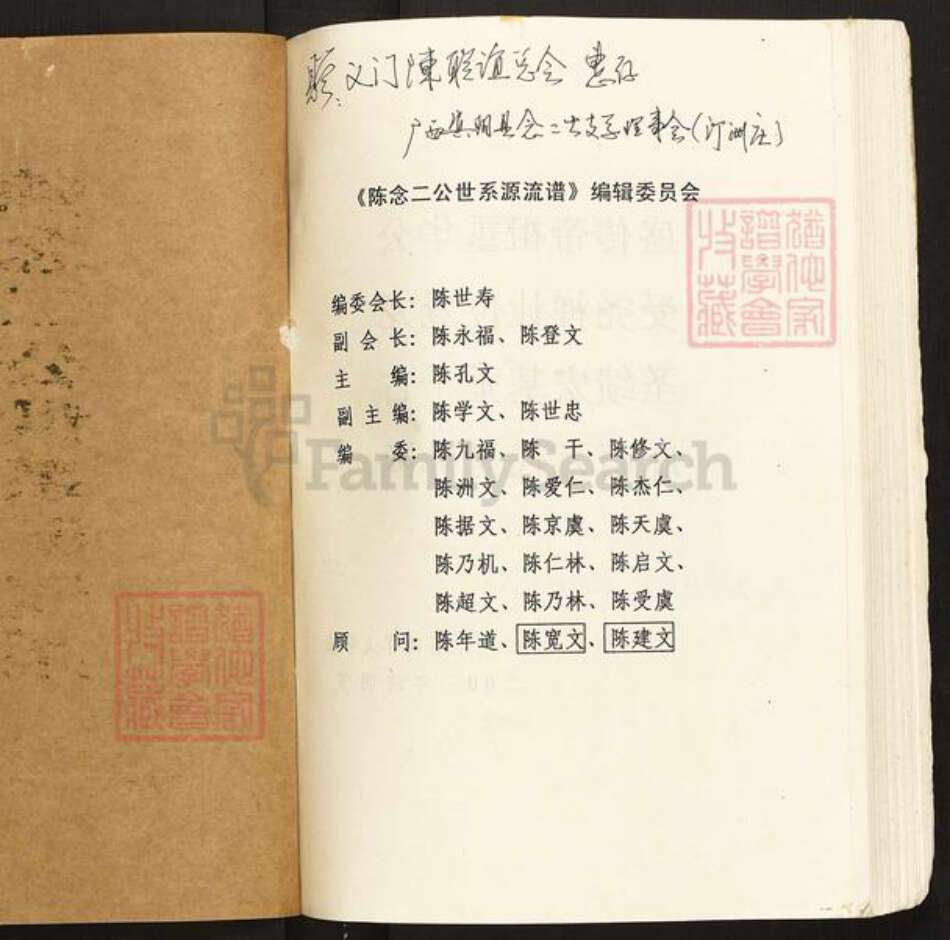 义门陳联谊总会 惠存
广西宾阳县念二公支系理事会(汀洲庄)
《陈念二公世系源流谱》编辑委员会
编委会长：陈世寿
副会长：陈永福、陈登文
主 编：陈孔文
副主编：陈学文、陈世忠
编 委：陈九福、陈 干、陈修文、
陈洲文、陈爱仁、陈杰仁、
陈据文、陈京虞、陈天虞、
陈乃机、陈仁林、陈启文、
陈超文、陈乃林、陈受虞
顾 问：陈年道、陈宽文、陈建文
FamilySearch